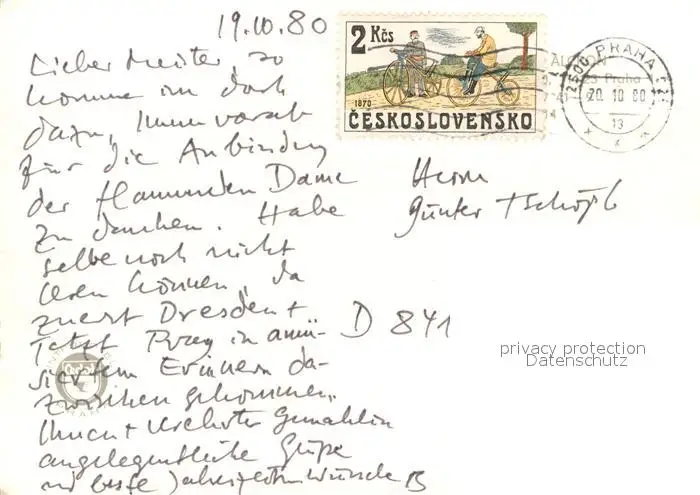 19.10.80
Lieber Meister, so
komme ich doch
dazu, Ihnen vorab
für die Anbindung
der flammenden Dame
zu danken. Habe
selbe noch nicht
lesen können, da
zuerst Dresden +
jetzt Prag in amü-
sierfem Erinnern da-
zwischen gekommen.
Ihnen + verehrter Gemahlin
angelegentliche Grüße
und beste Jahreszeitenwünsche
2 Kčs
1870
ČESKOSLOVENSKO
PRAHA
20.10.80
13
Herrn
Günter Tschöpl
D 841
privacy protection
Datenschutz